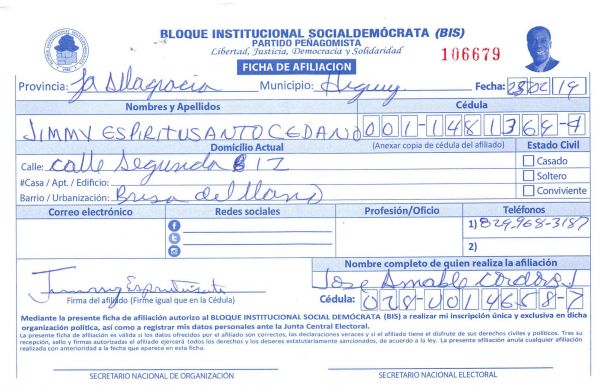 BLOQUE INSTITUCIONAL SOCIALDEMÓCRATA (BIS)
PARTIDO PEÑAGOMISTA
Libertad, Justicia, Democracia y Solidaridad
106679
FICHA DE AFILIACION
Provincia: La Altagracia Municipio: Higuey Fecha: 23/02/19
Nombres y Apellidos Cédula
JIMMY ESPIRITUSANTO CEDANO 001-1481364-7
Domicilio Actual (Anexar copia de cédula del afiliado) Estado Civil
Calle: calle Segunda 12 Casado
#Casa / Apt. / Edificio: Soltero
Barrio / Urbanización: Brisa del llano Conviviente
Correo electrónico Redes sociales Profesión/Oficio Teléfonos
1) 829-968-3187
2)
Nombre completo de quien realiza la afiliación
Jimmy Espiritusanto Jose Amable
Firma del afiliado (Firme igual que en la Cédula) Cédula: 028-0014658-7
Mediante la presente ficha de afiliación autorizo al BLOQUE INSTITUCIONAL SOCIAL DEMÓCRATA (BIS) a realizar mi inscripción única y exclusiva en dicha
organización politica, así como a registrar mis datos personales ante la Junta Central Electoral.
La presente ficha de afiliación es válida si los datos ofrecidos por el afiliado son correctos, las declaraciones veraces y si el afiliado tiene el disfrute de sus derechos civiles y políticos. Tras su
recepción, sello y firmas autorizadas el afiliado ejercerá todos los derechos y los deberes estatutariamente sancionados, de acuerdo a la ley. La presente afiliación anula cualquier afiliación
realizada con anterioridad a la fecha que aparece en esta ficha.
SECRETARIO NACIONAL DE ORGANIZACIÓN SECRETARIO NACIONAL ELECTORAL